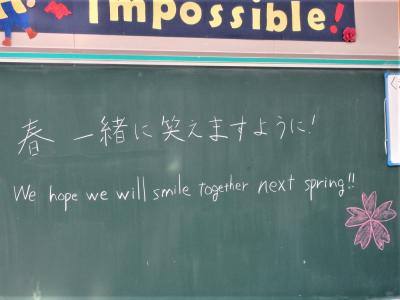 Impossible!
春 一緒に笑えますように!
We hope we will smile together next spring!!